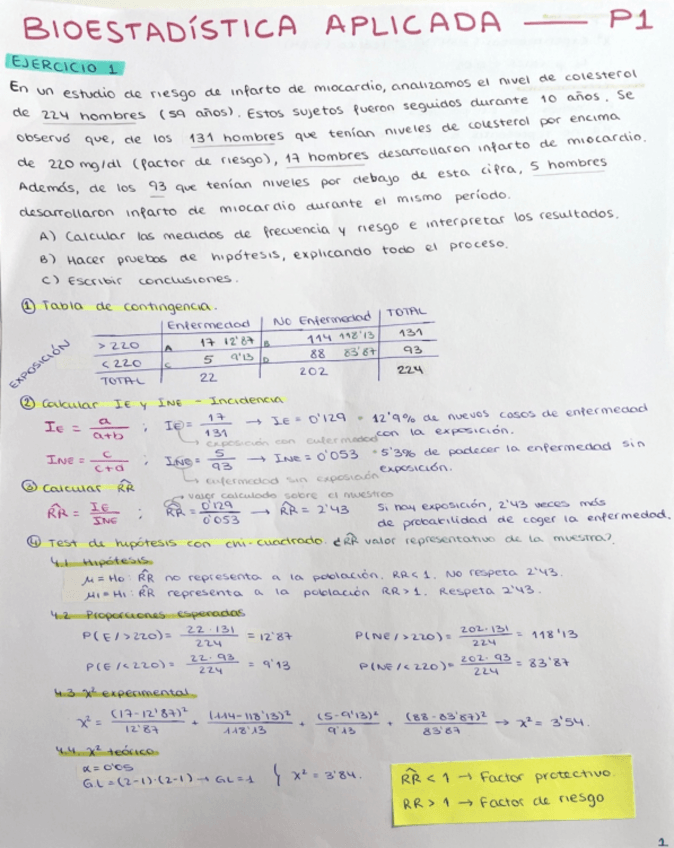 BIOESTADÍSTICA APLICADA — P1
EJERCICIO 1
En un estudio de riesgo de infarto de miocardio, analizamos el nivel de colesterol
de 224 hombres (59 años). Estos sujetos fueron seguidos durante 10 años. Se
observó que, de los 131 hombres que tenían niveles de colesterol por encima
de 220 mg/dl (factor de riesgo), 17 hombres desarrollaron infarto de miocardio.
Además, de los 93 que tenían niveles por debajo de esta cifra, 5 hombres
desarrollaron infarto de miocardio durante el mismo período.
A) Calcular las medidas de frecuencia y riesgo e interpretar los resultados.
B) Hacer pruebas de hipótesis, explicando todo el proceso.
C) Escribir conclusiones.
① Tabla de contingencia.
Enfermedad No Enfermedad TOTAL
EXPOSICIÓN
> 220 A 17 12'87 B 114 118'13 131
< 220 C 5 9'13 D 88 83'87 93
TOTAL 22 202 224
② Calcular IE y INE - Incidencia
IE = a/a+b ; IE = 17/131 → IE = 0'129 = 12'9% de nuevos casos de enfermedad
con la exposición.
↳ exposición con enfermedad
INE = c/c+d ; INE = 5/93 → INE = 0'053 = 5'3% de padecer la enfermedad sin
exposición.
↳ enfermedad sin exposición
③ Calcular R̂R
↳ valor calculado sobre el muestreo
R̂R = IE/INE ; R̂R = 0'129/0'053 → R̂R = 2'43 Si hay exposición, 2'43 veces más
de probabilidad de coger la enfermedad.
④ Test de hipótesis con chi-cuadrado. ¿R̂R valor representativo de la muestra?
4.1 Hipótesis
μ = H0: R̂R no representa a la población. RR < 1. No respeta 2'43.
μ1 = H1: R̂R representa a la población RR > 1. Respeta 2'43.
4.2 Proporciones esperadas
P(E/>220) = 22·131/224 = 12'87 P(NE/>220) = 202·131/224 = 118'13
P(E/<220) = 22·93/224 = 9'13 P(NE/<220) = 202·93/224 = 83'87
4.3 χ² experimental
χ² = (17-12'87)²/12'87 + (114-118'13)²/118'13 + (5-9'13)²/9'13 + (88-83'87)²/83'87 → χ² = 3'54.
4.4. χ² teórico
α = 0'05
GL = (2-1)·(2-1) → GL = 1 { χ² = 3'84.
R̂R < 1 → Factor protectivo.
RR > 1 → Factor de riesgo
1